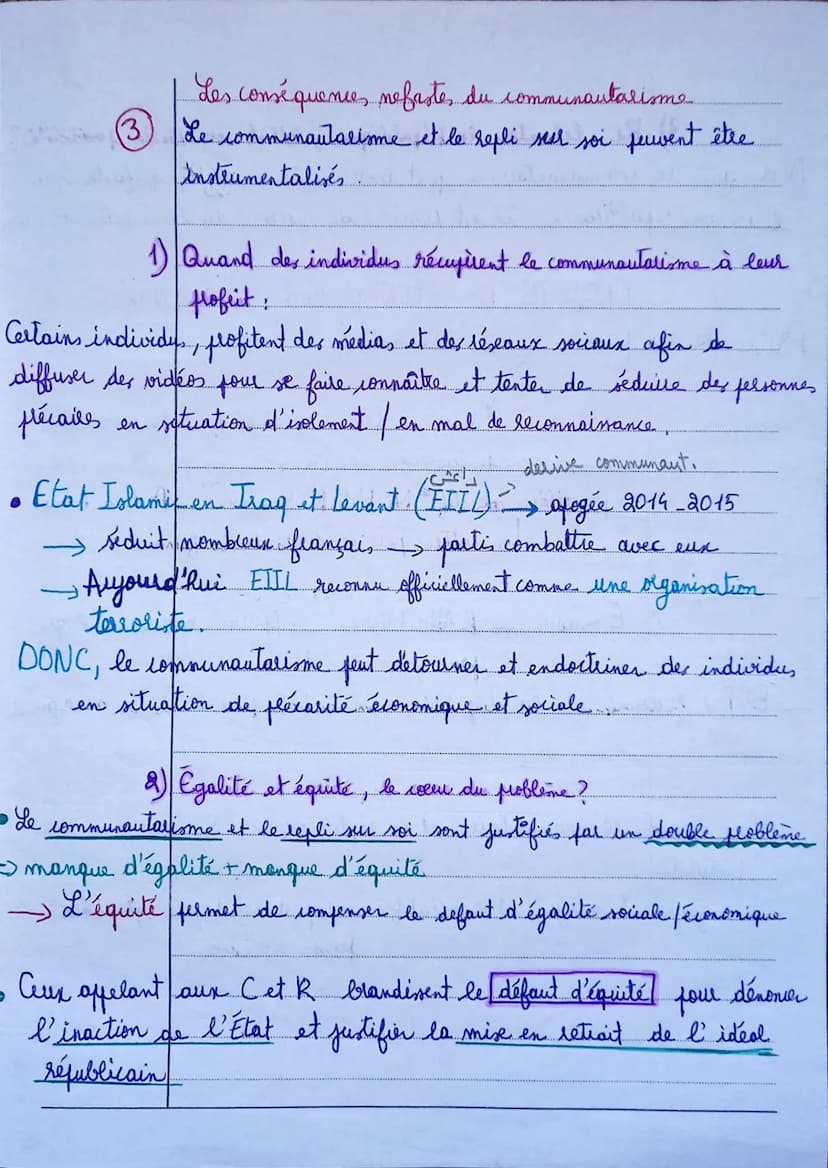 Les conséquences nefastes du communautarisme
③ Le communautarisme et le repli sur soi peuvent être
instrumentalisés.
1) Quand des individus récupèrent le communautarisme à leur
profeit :
Certains individus, profitent des médias et des réseaux sociaux afin de
diffuser des vidéos pour se faire connaître et tenter de séduire des personnes
précaires en situation d'isolement / en mal de reconnaissance.
داعش -> derive communaut.
• Etat Islamic en Iraq et Levant (EIIL) → apogée 2014-2015
→ séduit nombreux français → parti combattre avec eux
→ Aujourd'hui EIIL reconnu officiellement comme une organisation
terroriste.
DONC, le communautarisme peut détourner et endoctriner des individus
en situation de précarité économique et sociale...
2) Egalité et équité, le coeur du problème ?
• Le communautarisme et le repli sur soi sont justifiés par un double problème
=> manque d'égalité + manque d'équité
→ L'équité permet de compenser le defaut d'égalité sociale/économique
• Ceux appelant aux C et R brandissent le défaut d'équité pour dénoncer
l'inaction de l'État et justifier la mise en retrait de l'idéal
républicain